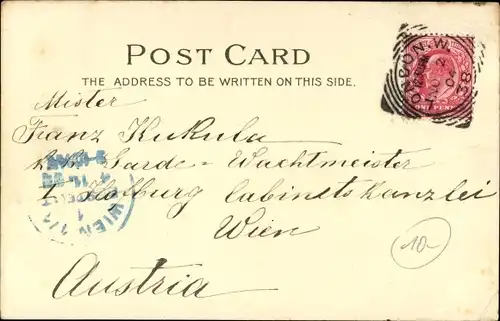 POST CARD
THE ADDRESS TO BE WRITTEN ON THIS SIDE.
LONDON.W.
38
ONE PENNY
Mister
Franz Kukula
k. k. Garde = Wachtmeister
k. Hofburg Cabinetskanzlei
Wien
WIEN 1/1
10-
Austria